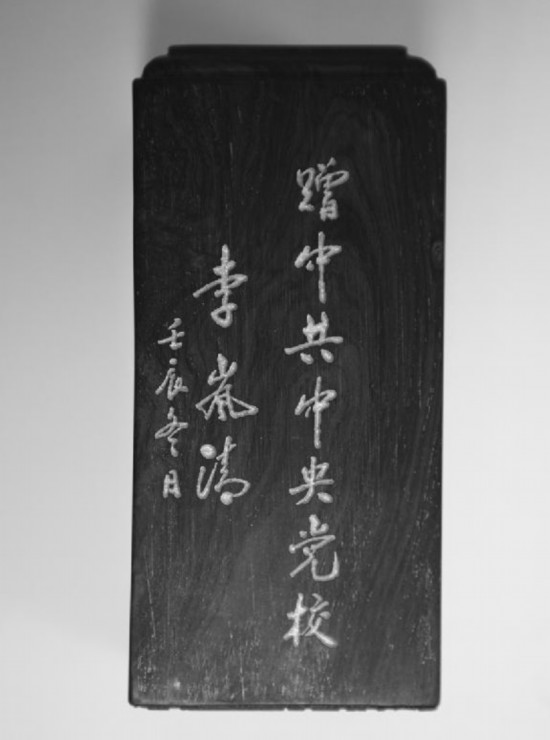 赠中共中央党校
李岚清
壬辰冬日